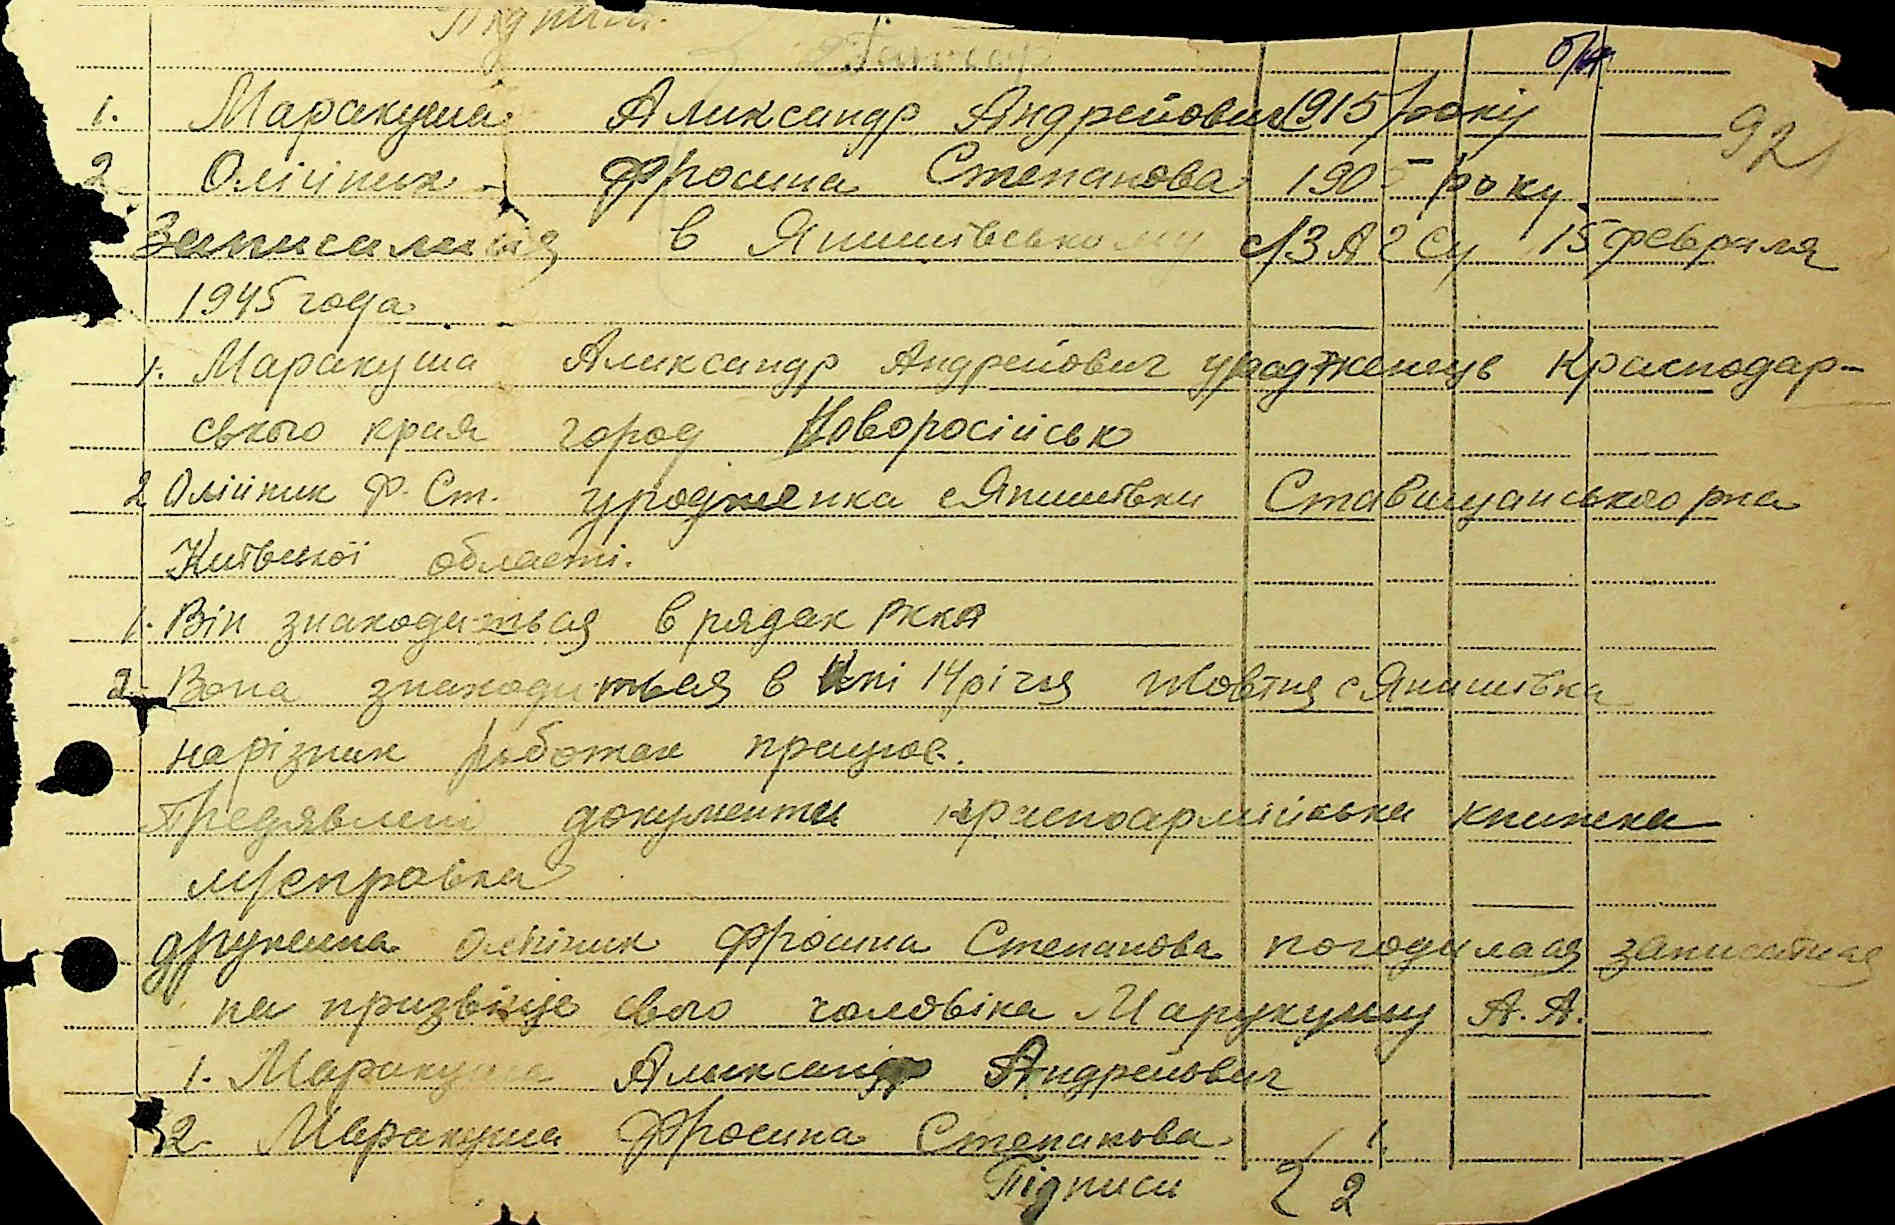 Підписи.
б/н
1. Маракуша Аликсандр Андрейович 1915 року
92
2 Олійник Фросина Степанова 1905 року
Записалися в Янишівському с/ЗАГСу 15 февраля
1945 года
1. Маракуша Аликсандр Андрейович урадженець Краснодар-
ського края город Новоросійськ
2 Олійник Ф. Ст. уродженка с Янишівки Ставищанського р на
Київської області.
1. Він знаходиться в рядах РККА
2. Вона знаходиться в імені 14 річчя Жовтня с Янишівка
на різних работах працює.
Предявлені документи красноармійська книжка
справка
дружина Олійник Фросина Степанова погодилася записатися
на призвіще свого чоловіка Марукушу А. А.
1. Маракуша Аликсандр Андрейович
2 Маракуша Фросина Степанова
Підписи 1. 2